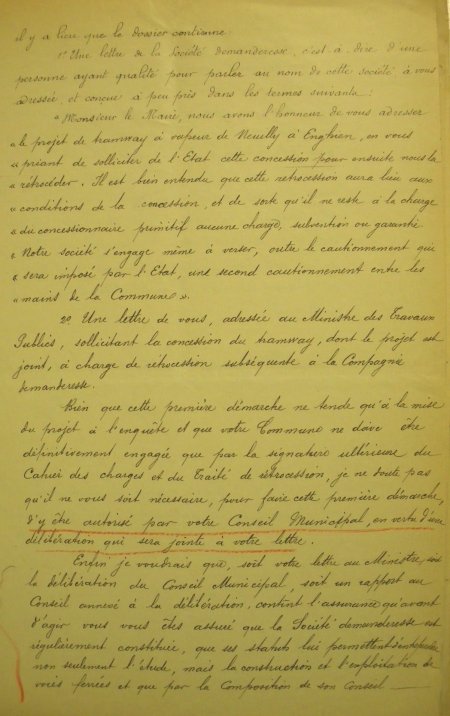 il y a lieu que le dossier contienne:
1º Une lettre de la Société demanderesse, c'est à dire d'une
personne ayant qualité pour parler au nom de cette société à vous
adressée, et conçue à peu près dans les termes suivants:
"Monsieur le Maire, nous avons l'honneur de vous adresser
"le projet de tramway à vapeur de Neuilly à Enghien, en vous
"priant de solliciter de l'Etat cette concession pour ensuite nous la
"rétrocéder. Il est bien entendu que cette retrocession aura lieu aux
"conditions de la concession, et de sorte qu'il ne reste à la charge
"du concessionnaire primitif aucune charge, subvention ou garantie.
"Notre société s'engage même à verser, outre le cautionnement qui
"sera imposé par l'Etat, une second cautionnement entre les
"mains de la Commune".
2º Une lettre de vous, adressée au Ministre des Travaux
Publics, sollicitant la concession du tramway, dont le projet est
joint, à charge de rétrocession subséquente à la Compagnie
demanderesse.
Bien que cette première démarche ne tende qu'à la mise
du projet à l'enquête et que votre Commune ne doive être
définitivement engagée que par la signature ultérieure du
Cahier des charges et du Traité de rétrocession, je ne doute pas
qu'il ne vous soit nécessaire, pour faire cette première démarche,
d'y être autorisé par votre Conseil Municipal, en vertu d'une
délibération qui sera jointe à votre lettre.
Enfin je voudrais que, soit votre lettre au Ministre, soit
la délibération du Conseil Municipal, soit un rapport au
Conseil annexé à la délibération, contint l'assurance qu'avant
d'agir vous vous êtes assuré que la Société demanderesse est
régulièrement constituée, que ses statuts lui permettent d'entreprendre
non seulement l'étude, mais la construction et l'exploitation de
voies ferrées et que par la Composition de son Conseil